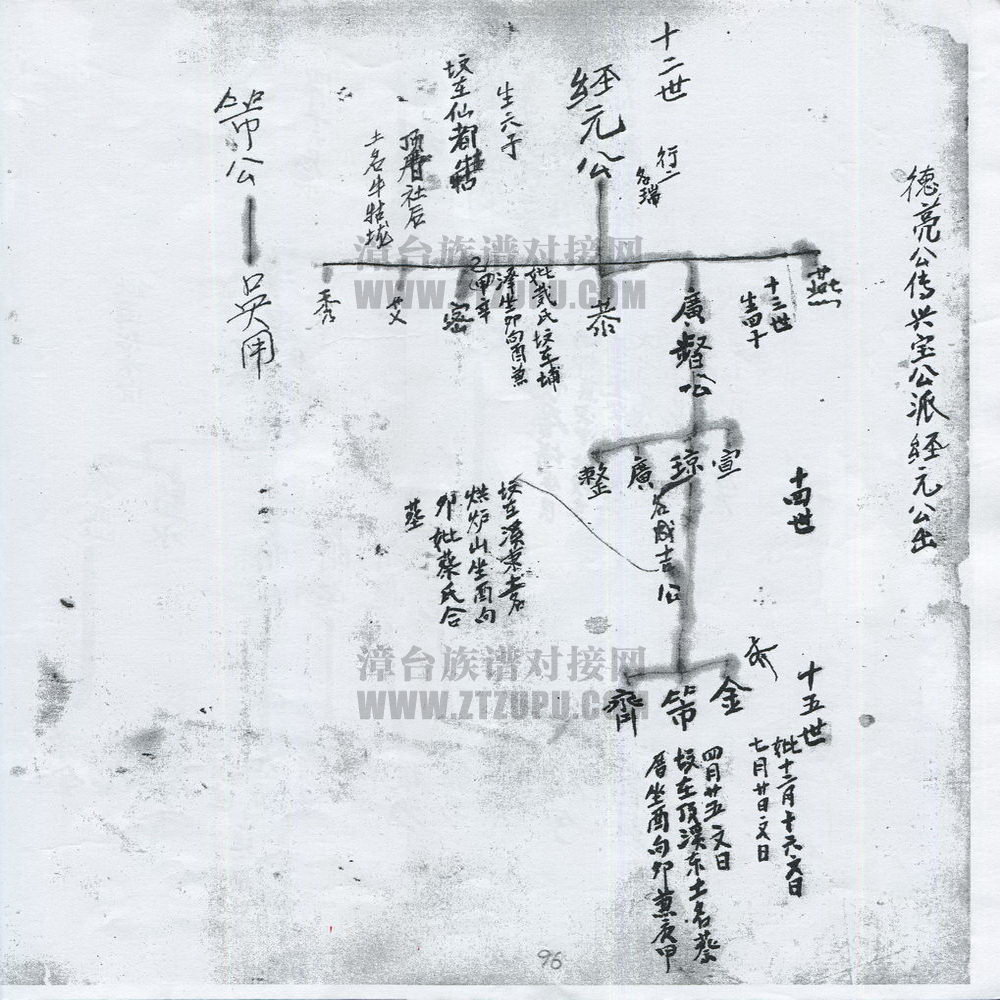 德亮公传兴宝公派经元公出
十二世
行二
名瑞
經元公
生六子
坟在仙都
社后
土名牛牯垅
燕
十三世
生四子
廣督公
恭
妣戴氏坟在埔
澤坐卯向酉兼
密
艾
秀
十四世
宣
琼
廣
整
名成吉公
坟在溪東土名
烘炉山坐酉向
卯妣蔡氏合
墓
十五世
金
第
齊
妣十二月十六文日
七月廿日文日
四月廿五文日
坟在頂溪东土名蔡
厝坐酉向卯兼庚甲
第公
吳用
漳台族谱对接网
WWW.ZTZUPU.COM
漳台族谱对接网
WWW.ZTZUPU.COM
96